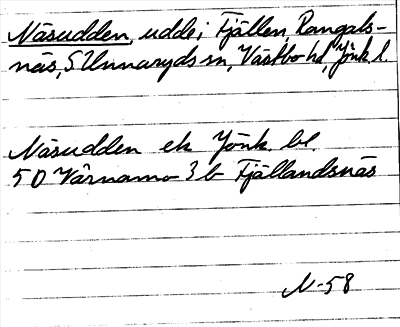 Näsudden, udde i Fjällen, Rangals-
näs, S Unnaryds sn, Västbo hd, Jönk. l.
Näsudden ek Jönk. bl.
5 D Värnamo 3 b Fjällandsnäs
N-58